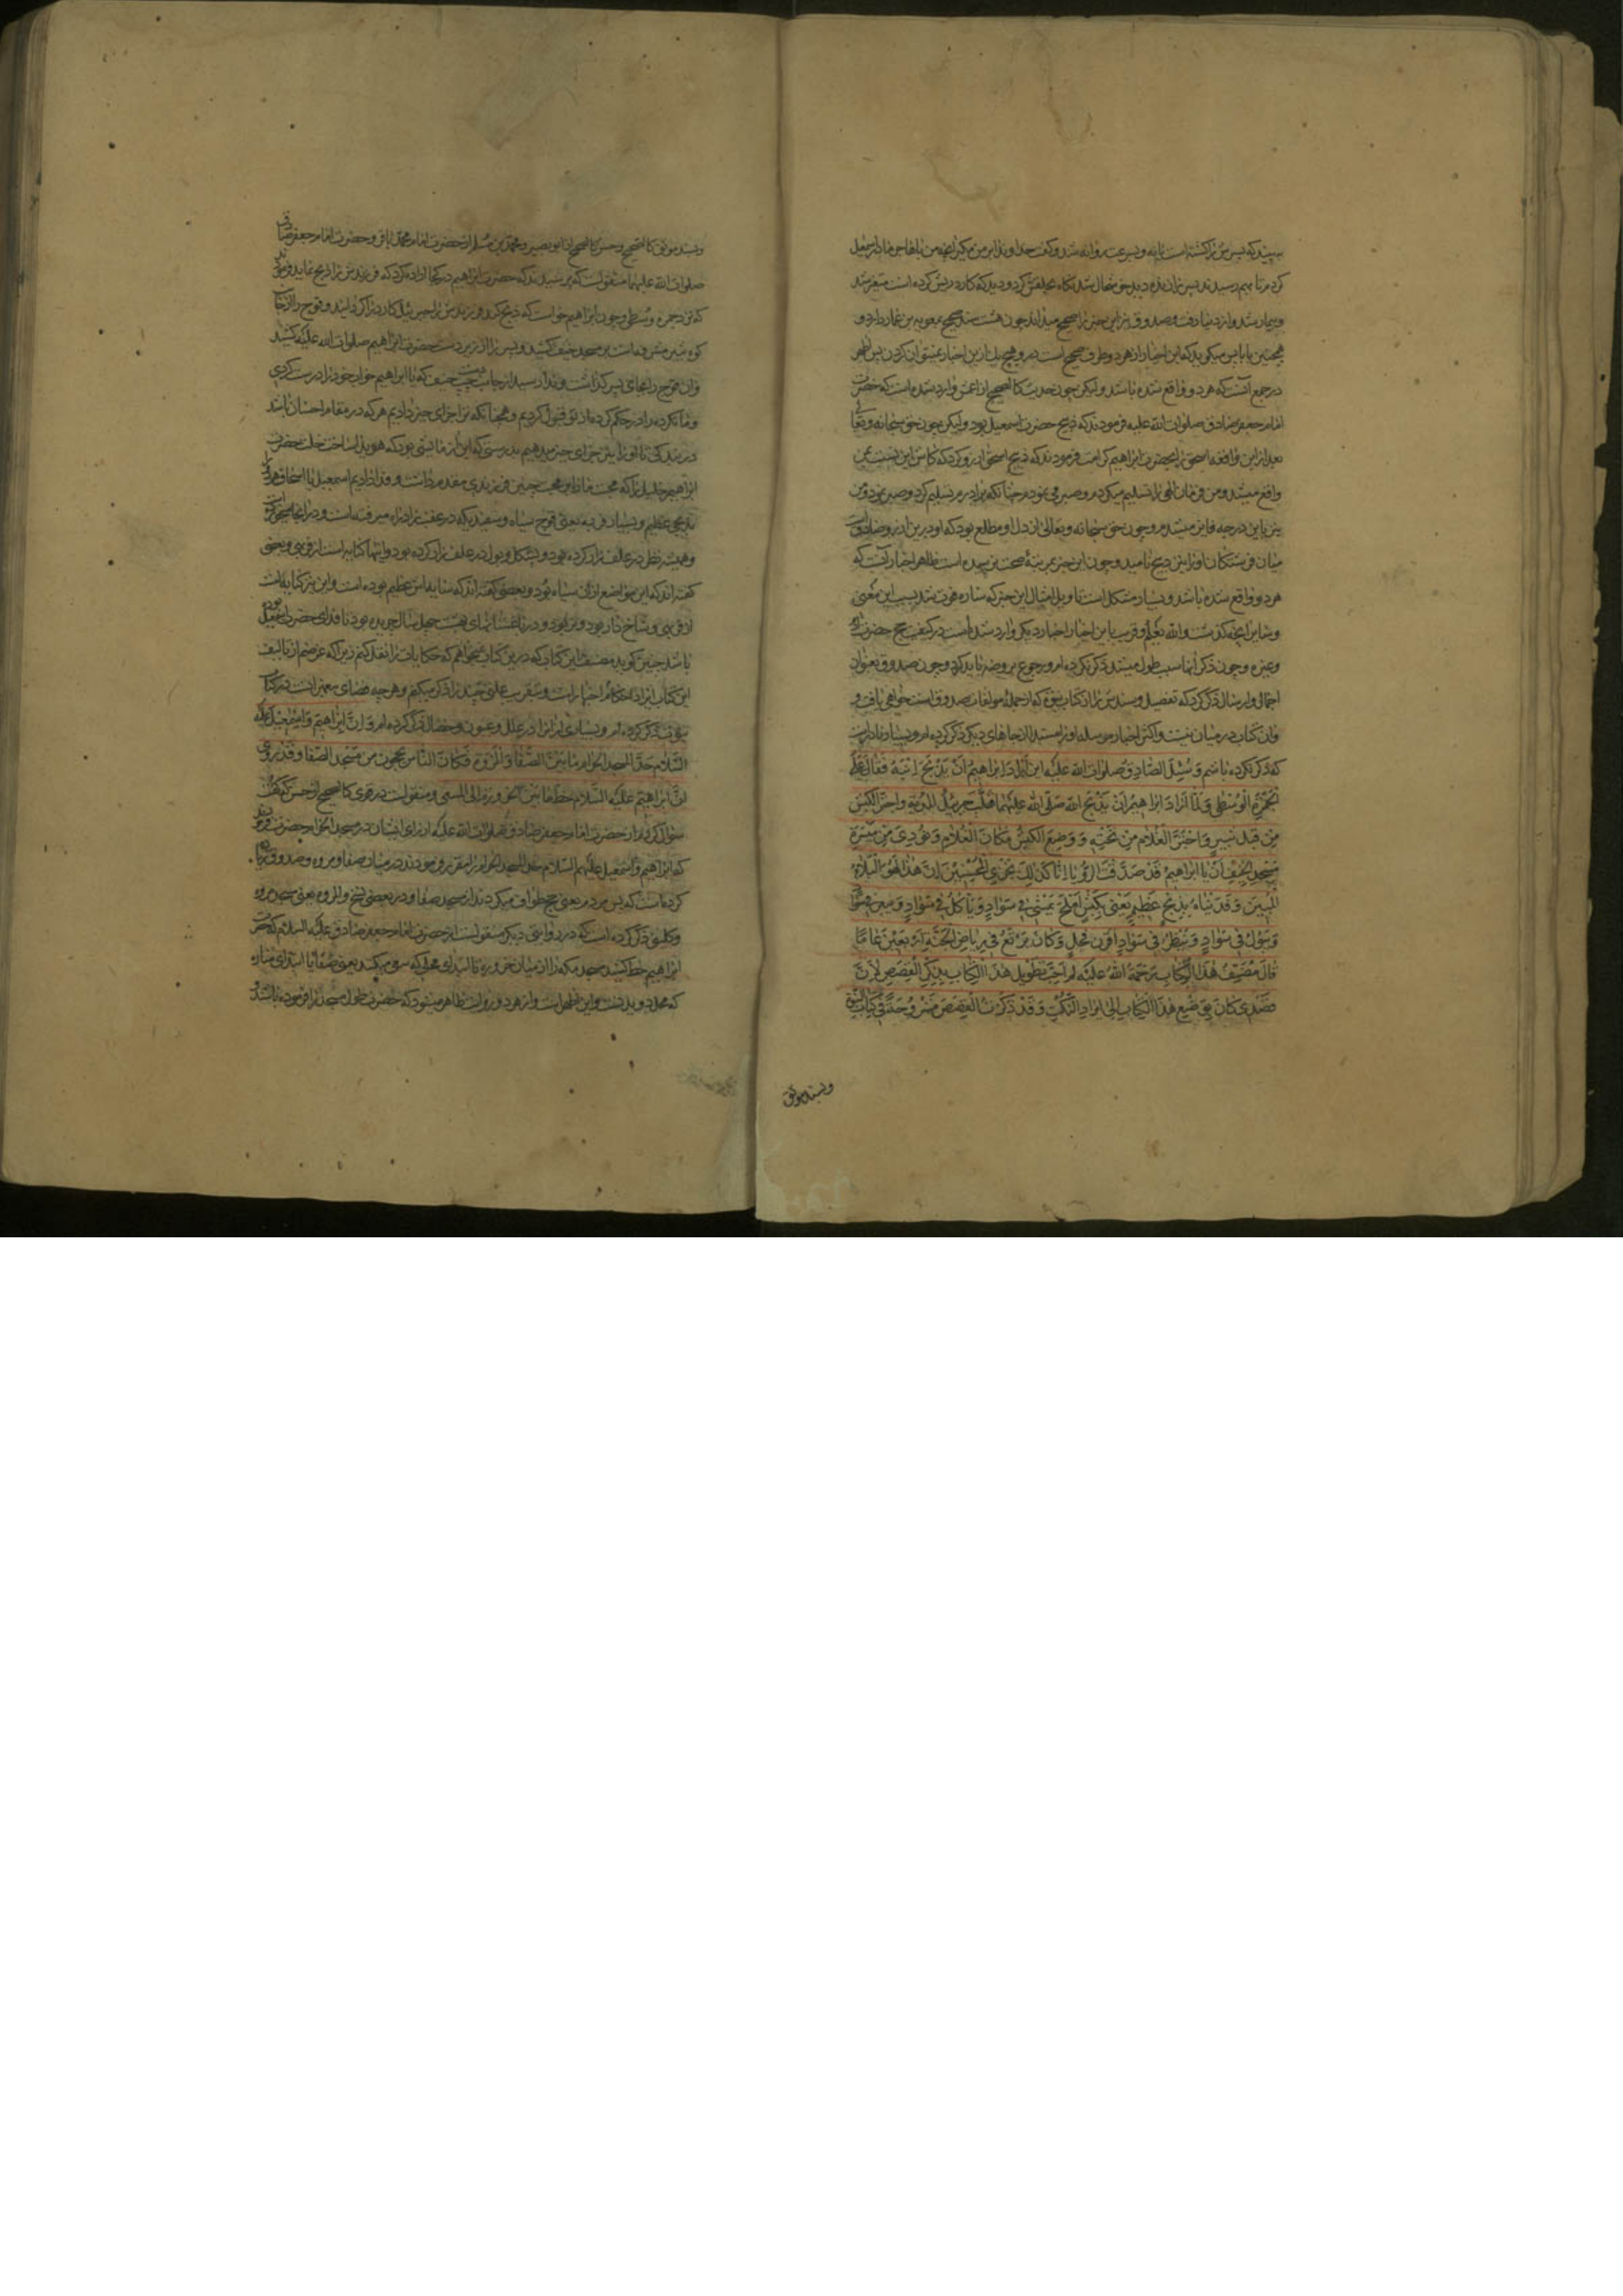 ببیند که پسرش را کشته است یا نه و بسرعت روانه شد و گفت خداوندا بر من مگیر آنچه من با هاجر مادر اسمعیل
کردم تا بهم رسیدند پسر زنده دید خوشحال شد نگاه بحلقش کرد و دید که کارد ریش کرده است متغیر شد
و بیمار شد و از دنیا رفت و صدوق نیز این خبر را صحیح میداند چون هشت سند صحیح بمعویه بن عمار دارد و
همچنین بابا پس میگوید که این اخبار از هر دو طرف صحیح است
در جمع آنست که هر دو واقع شده باشد و لیکن چون حدیث کالصحیح از اعمش وارد شده است که حضرت
امام جعفر صادق صلوات الله علیه فرمودند که ذبیح حضرت اسمعیل بود و لیکن چون حق سبحانه و تعالی
بعد از این واقعه اسحق را بحضرت ابراهیم کرامت فرمودند که ذبیح اسحق آرزو کرد که کاش این نسبت بمن
واقع میشد و من فرمان الهی را تسلیم میکردم و صبر می نمودم چنانکه برادرم تسلیم کرد و صبر نمود و من
نیز باین درجه فایز میشدم و چون حق سبحانه و تعالی از دل او مطلع بود که او درین آرزو صادقست
میان فرشتگان او را نیز ذبیح نامید و چون این خبر بمرتبه صحت نرسیده است ظاهر اخبار آنست که
هر دو واقع شده باشد و بسیار مشکل است تاویل امثال این خبر که ساره فوت شد بسبب این معنی
و سایر آنچه گذشت و الله یعلم و قریب باین اخبار اخبار دیگر وارد شده است در کیفیت حج حضرت آدم
و غیره و چون ذکر آنها سبب طول میشد ذکر نکرده ام و رجوع بروضه باید کرد و چون صدوق بعنوان
اجمال و ارسال ذکر کرد که تفصیل و سندش را از کتاب نبوة که از جمله مولفات صدوق است خواهی یافت و
و آن کتاب در میان نیست و اکثر اخبار مرسله او را مسند از جاهای دیگر ذکر کرده ام و بسیار نادر است
که ذکر نکرده باشم وَ سُئِلَ الصَّادِقُ صلوات الله علیه این اراد ابراهیم اَنْ یَذْبَحَ ابنَهُ فَقالَ عَلَی
الجَمْرَةِ الْوُسْطی وَ لَمّا اَرادَ اِبراهیمُ اَنْ یَذْبَحَ ابنه صَلّی الله عَلَیْهِما قَلَّبَ جبرئیلُ المُدْیَةَ وَ اجْتَرَّ الکَبْشَ
مِنْ قِبَلِ ثَبیرٍ وَ اجْتَرَّ الغُلامَ مِنْ تَحْتِهِ وَ وَضَعَ الکَبْشَ مَکانَ الغُلامِ وَ نُودِیَ مِنْ مَیْسَرَةِ
مَسْجِدِ الْخَیْفِ اَنْ یا اِبراهیمُ قَدْ صَدَّقْتَ الرُّؤْیا اِنّا کَذلِکَ نَجْزِی الْمُحْسِنینَ اِنَّ هذا لَهُوَ الْبَلاءُ
الْمُبینُ وَ فَدَیْناهُ بِذِبْحٍ عَظیمٍ یَعْنی بِکَبْشٍ اَمْلَحَ یَمْشی فی سَوادٍ وَ یَأکُلُ فی سَوادٍ وَ یَبْعَرُ فی سَوادٍ
وَ یَبُولُ فی سَوادٍ وَ یَنْظُرُ فی سَوادٍ اَقْرَنَ فَحْلٍ وَ کانَ یَرْتَعُ فی رِیاضِ الْجَنَّةِ اَرْبَعینَ عامًا
قالَ مُصَنِّفُ هذَا الْکِتابِ رَحْمَةُ اللهِ عَلَیْهِ لَمْ اُحِبَّ تَطْویلَ هذَا الْکِتابِ بِذِکْرِ الْقِصَصِ لِاَنَّ
قَصْدی کانَ بِوَضْعِ هذَا الْکِتابِ اِلی ایرادِ النُّکَتِ وَ قَدْ ذَکَرْتُ الْقِصَصَ مَشْرُوحَةً فی کِتابِ النُّبُوَّةِ
و بسند موثق
و بسند موثق کالصحیح و حسن کالصحیح از ابو بصیر و محمد بن مسلم از حضرت امام محمد باقر و حضرت امام جعفر صادق
صلوات الله علیهما منقولست که پرسیدند که حضرت ابراهیم در کجا اراده کرد که فرزندش را ذبح نماید فرمودند
که نزد جمره وسطی و چون ابراهیم خواست که ذبح کند فرزندش را جبرئیل کارد را گردانید و قوچ را از جانب
کوه ثبیر که مشرفست بر مسجد خیف کشید و پسر را از زیر دست حضرت ابراهیم صلوات الله علیه کشید
و آن قوچ را بجای پسر گذاشت و ندا رسید از جانب چپ مسجد خیف که یا ابراهیم خواب خود را درست کردی
و ما نکرده را در حکم کرده از تو قبول کردیم و همچنانکه ترا جزای خیر دادیم هر که در مقام احسان باشد
در بندگی ما او را نیز جزای خیر میدهیم بدرستی که این آزمایشی بود که هویدا ساخت خلت حضرت
ابراهیم خلیل را که محبت ما را بر محبت چنین فرزندی مقدم داشت و فدا دادیم اسمعیل یا اسحاق هر دو را
بذبحی عظیم و بسیار فربه یعنی قوچ سیاه و سفیدی که در علفزار راه میرفته است و در آنجا میخورد
و همیشه نظر در علف زار کرده بود و پشکل و بول در علف زار کرده بود و اینها کنایه است از فربهی و بعضی
گفته اند که این مواضع از آن سیاه بود و بعضی گفته اند که سایه اش عظیم بوده است و این نیز کنایه است
از فربهی و شاخ دار بود و نر بود و در باغستانهای بهشت چهل سال چریده بود تا فدای حضرت اسمعیل
باشد چنین گوید مصنف این کتاب که درین کتاب نخواهم که حکایات را نقل کنم زیرا که غرضم از تالیف
این کتاب ایراد احکام و اخبار است و بتقریب علتی چند را ذکر میکنم و هر چه قصهای پیغمبرانست در کتاب
نبوت ذکر کرده ام و بسیاری از آنرا در علل و عیون و خصال ذکر کرده ام وَ اِنَّ اِبراهیمَ وَ اِسْمعیلَ عَلَیْهِمَا
السَّلامُ حَدَّا المسجد الحرام ما بَیْنَ الصَّفا وَ الْمَرْوَةِ فَکانَ النّاسُ یَحُجُّونَ مِنْ مَسْجِدِ الصَّفا وَ قَدْ رُوِیَ
اَنَّ اِبراهیمَ عَلَیْهِ السَّلام خَطَّ ما بَیْنَ الحَزْوَرَةِ اِلَی المَسْعی و منقولست در قوی کالصحیح از حسن که گفت
سؤال کردم از حضرت امام جعفر صادق صلوات الله علیه از زیادتی ایشان در مسجد الحرام حضرت فرمودند
که ابراهیم و اسمعیل علیهم السلام حد المسجد الحرام را مقرر فرمودند در میان صفا و مروه و صدوق زیاد
کرده است که پس مردم یعنی حج طواف میکردند از مسجد صفا و در بعضی نسخ و المروه یعنی مسجد مروه
و کلینی ذکر کرده است که در روایتی دیگر منقولست از حضرت امام جعفر صادق علیه السلام که حضرت
ابراهیم خط کشید مسجد مکه را از میان حزوره تا ابتدای محلی که سعی میکنند یعنی صفا یا ابتدای مناره
که محل دویدنست و این اظهر است و از هر دو روایت ظاهر میشود که حضرت طول مسجد را فرموده باشند